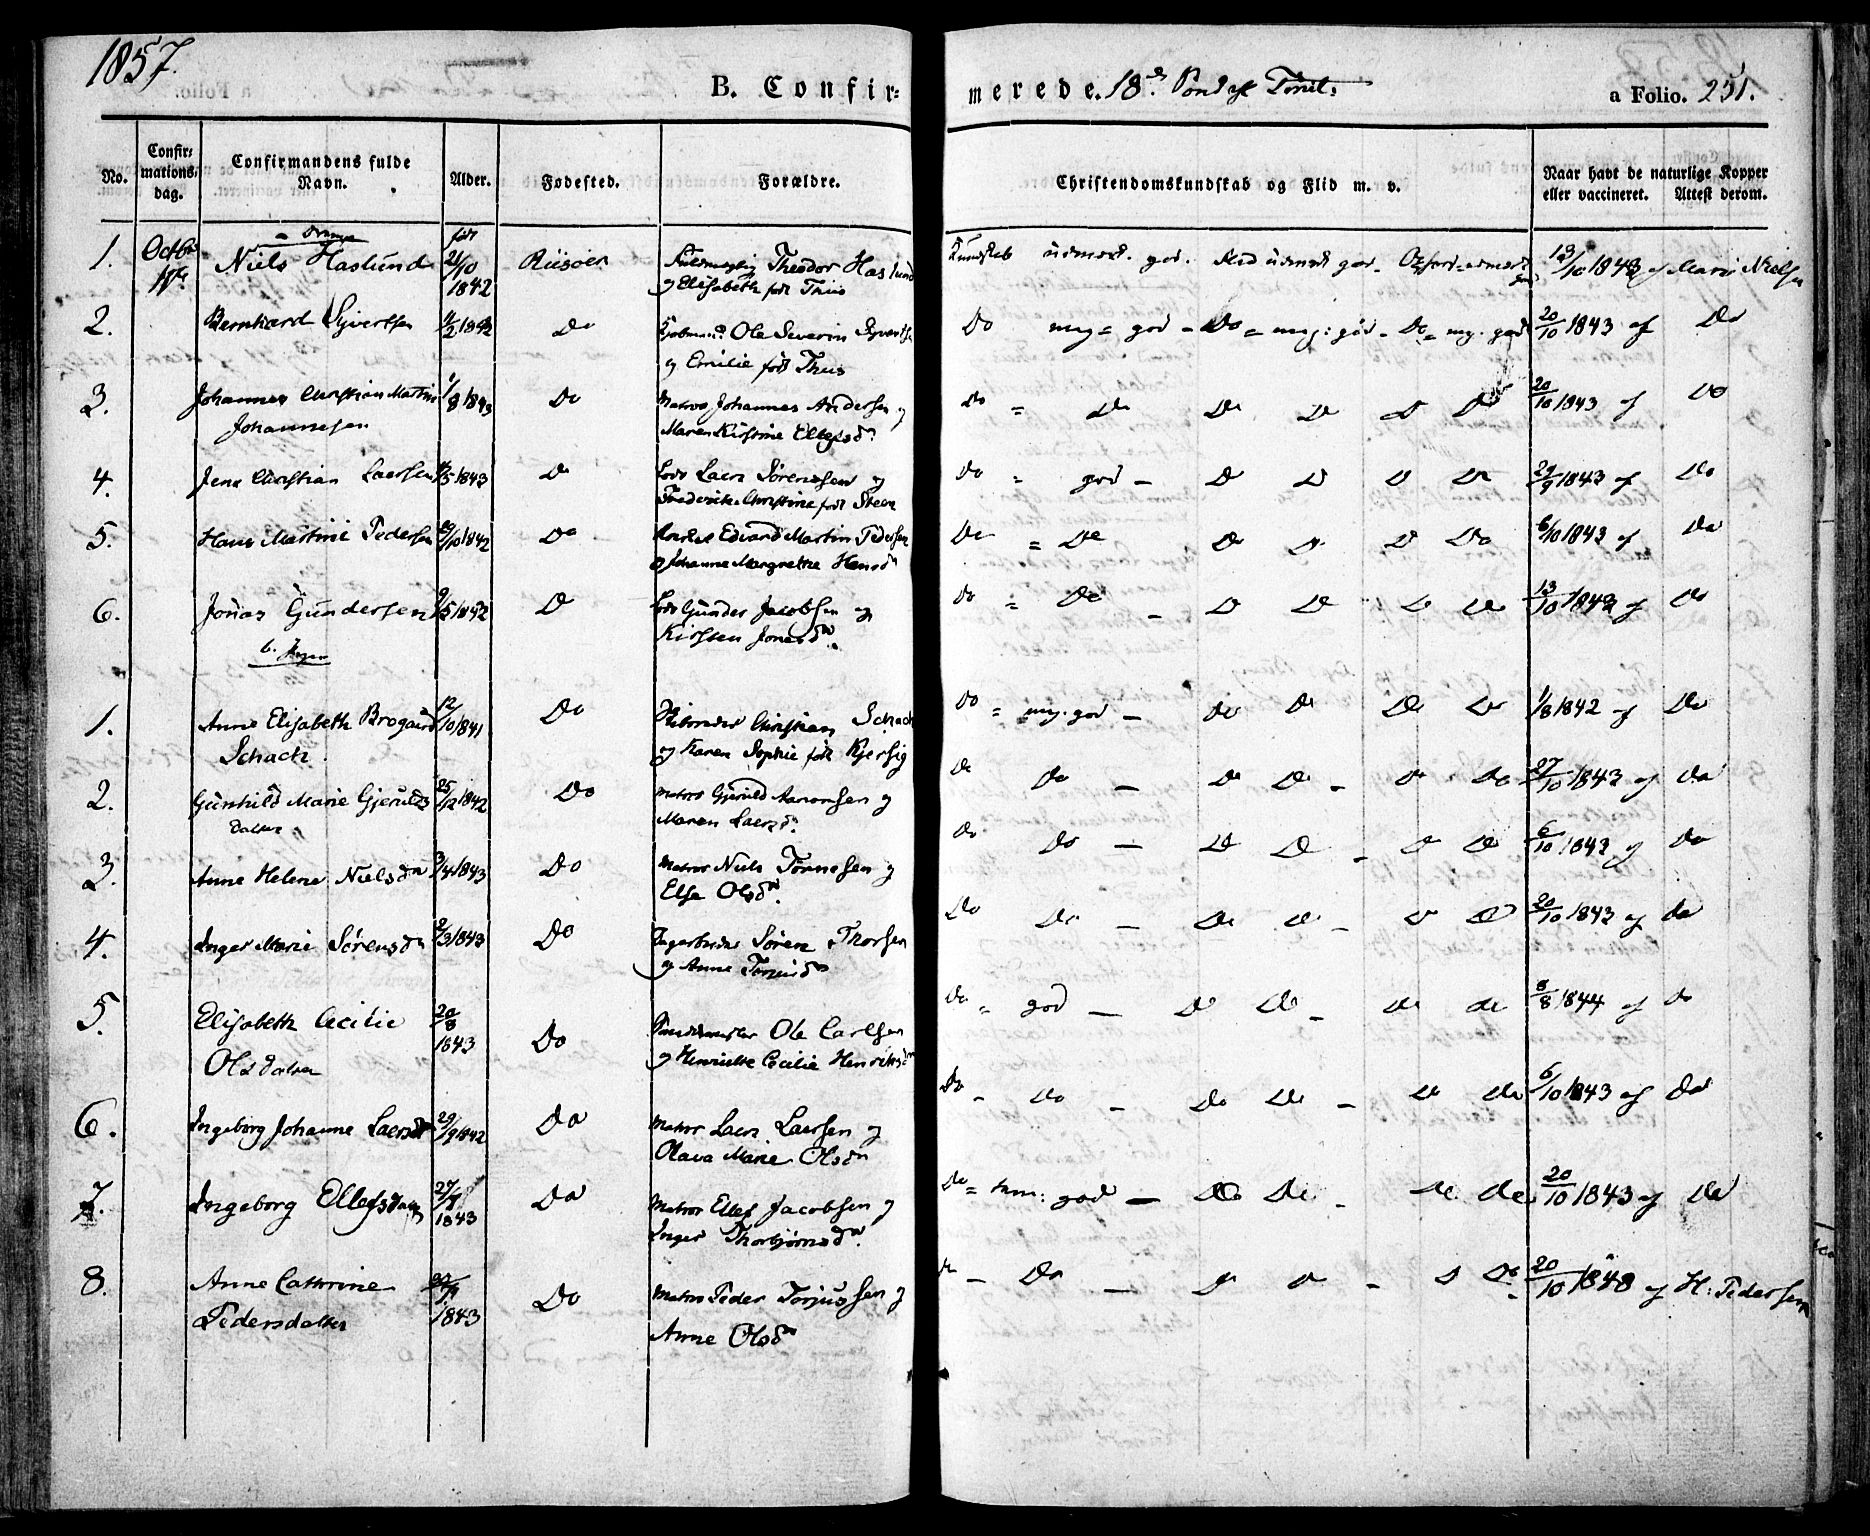 1857.
B. Confir=
merede. 18de Søndag Trinit:
a Folio. 251.
No.
Confir=
mations,
dag.
Confirmandens fulde
Navn.
Alder.
Fødested.
Forældre.
Christendomskundskab og Flid m. v.
Naar havt de naturlige Kopper
eller vaccineret. Attest derom.
a Drenge
1. Octbr Niels Haslund født 21/10 1842 Riisøer
Theodor Haslund
og Elisabeth født Thiis
Kundskab udmærk. god. Flid udmærk god
12/10 1843 af Marie Nielsen
2. Bernhard Syvertsen 1842 Do
Ole Severin Syvertsen
og Emilie født Thiis
Do meg= god - Do = meg: god - Do = meg. god 20/10 1843 af Do
3. Johannes Christian Martin
Johannesen
1/8 1843 Do
Matros Johannes Andersen og
Maren Kirstine Ellefsdr
Do = Do Do Do Do Do 20/10 1843 af Do
4. Jens Christian Laersen /5 1843 Do
Lods Laers Sørensen og
Frederikke Christine født Steen
Do = god - Do Do Do Do 29/9 1843 af Do
5. Hans Martinie Pedersen /10 1842 Do
Edvard Martin Pedersen
og Johanne Margrethe Hansdr
Do = Do Do Do Do Do 6/10 1843 af Do
6. Jonas Gundersen /5 1842 Do
Lods Gunder Jacobsen og
Kirsten Jonasdr.
Do = Do - Do Do Do Do 13/10 1842 af Do
b. Piger
1. Anne Elisabeth Brogaard
Schach.
12/10 1841 Do
Christian Schach
og Karen Sophie født Kjersig
Do = meg. god - Do Do Do Do 1/8 1842 af Do
2. Gunhild Marie Gjerulds
datter
25/12 1842 Do
Matros Gjeruld Aanonsen og
Maren Laersdr.
Do Do - Do Do - Do Do 27/10 1843 af Do
3. Anne Helene Nielsdr 3/4 1843 Do
Matros Niels Tønnesen og
Else Olsdr.
Do Do - Do Do - Do Do 6/10 1843 af Do
4. Inger Marie Sørensdr 2/3 1843 Do
Søren Thorsen
og Anne
Do Do - Do Do - Do Do 20/10 1843 af Do
5. Elisabeth Cecilie
Olsdatter
20/8
1843
Do
Ole Carlsen
og Henriette Cecilie Henriksdr
Do = god - Do Do - Do Do 8/8 1844 af Do
6. Ingeborg Johanne Laersdr 29/9 1842 Do
Matros Laers Laersen og
Olava Marie Olsdr
Do - Do - Do Do - Do Do 6/10 1843 af Do
7. Ingeborg Ellefsdatter
1843
Do
Matros Ellef Jacobsen og
Inger Thorbjørnsdr.
Do = tem: god - Do Do - Do Do 20/10 1843 af Do
8. Anne Cathrine
Pedersdatter
1843
Do
Matros Peder Torjussen og
Anne Olsdr
Do - Do - Do Do - Do Do 20/10 1848 af H: Pedersen